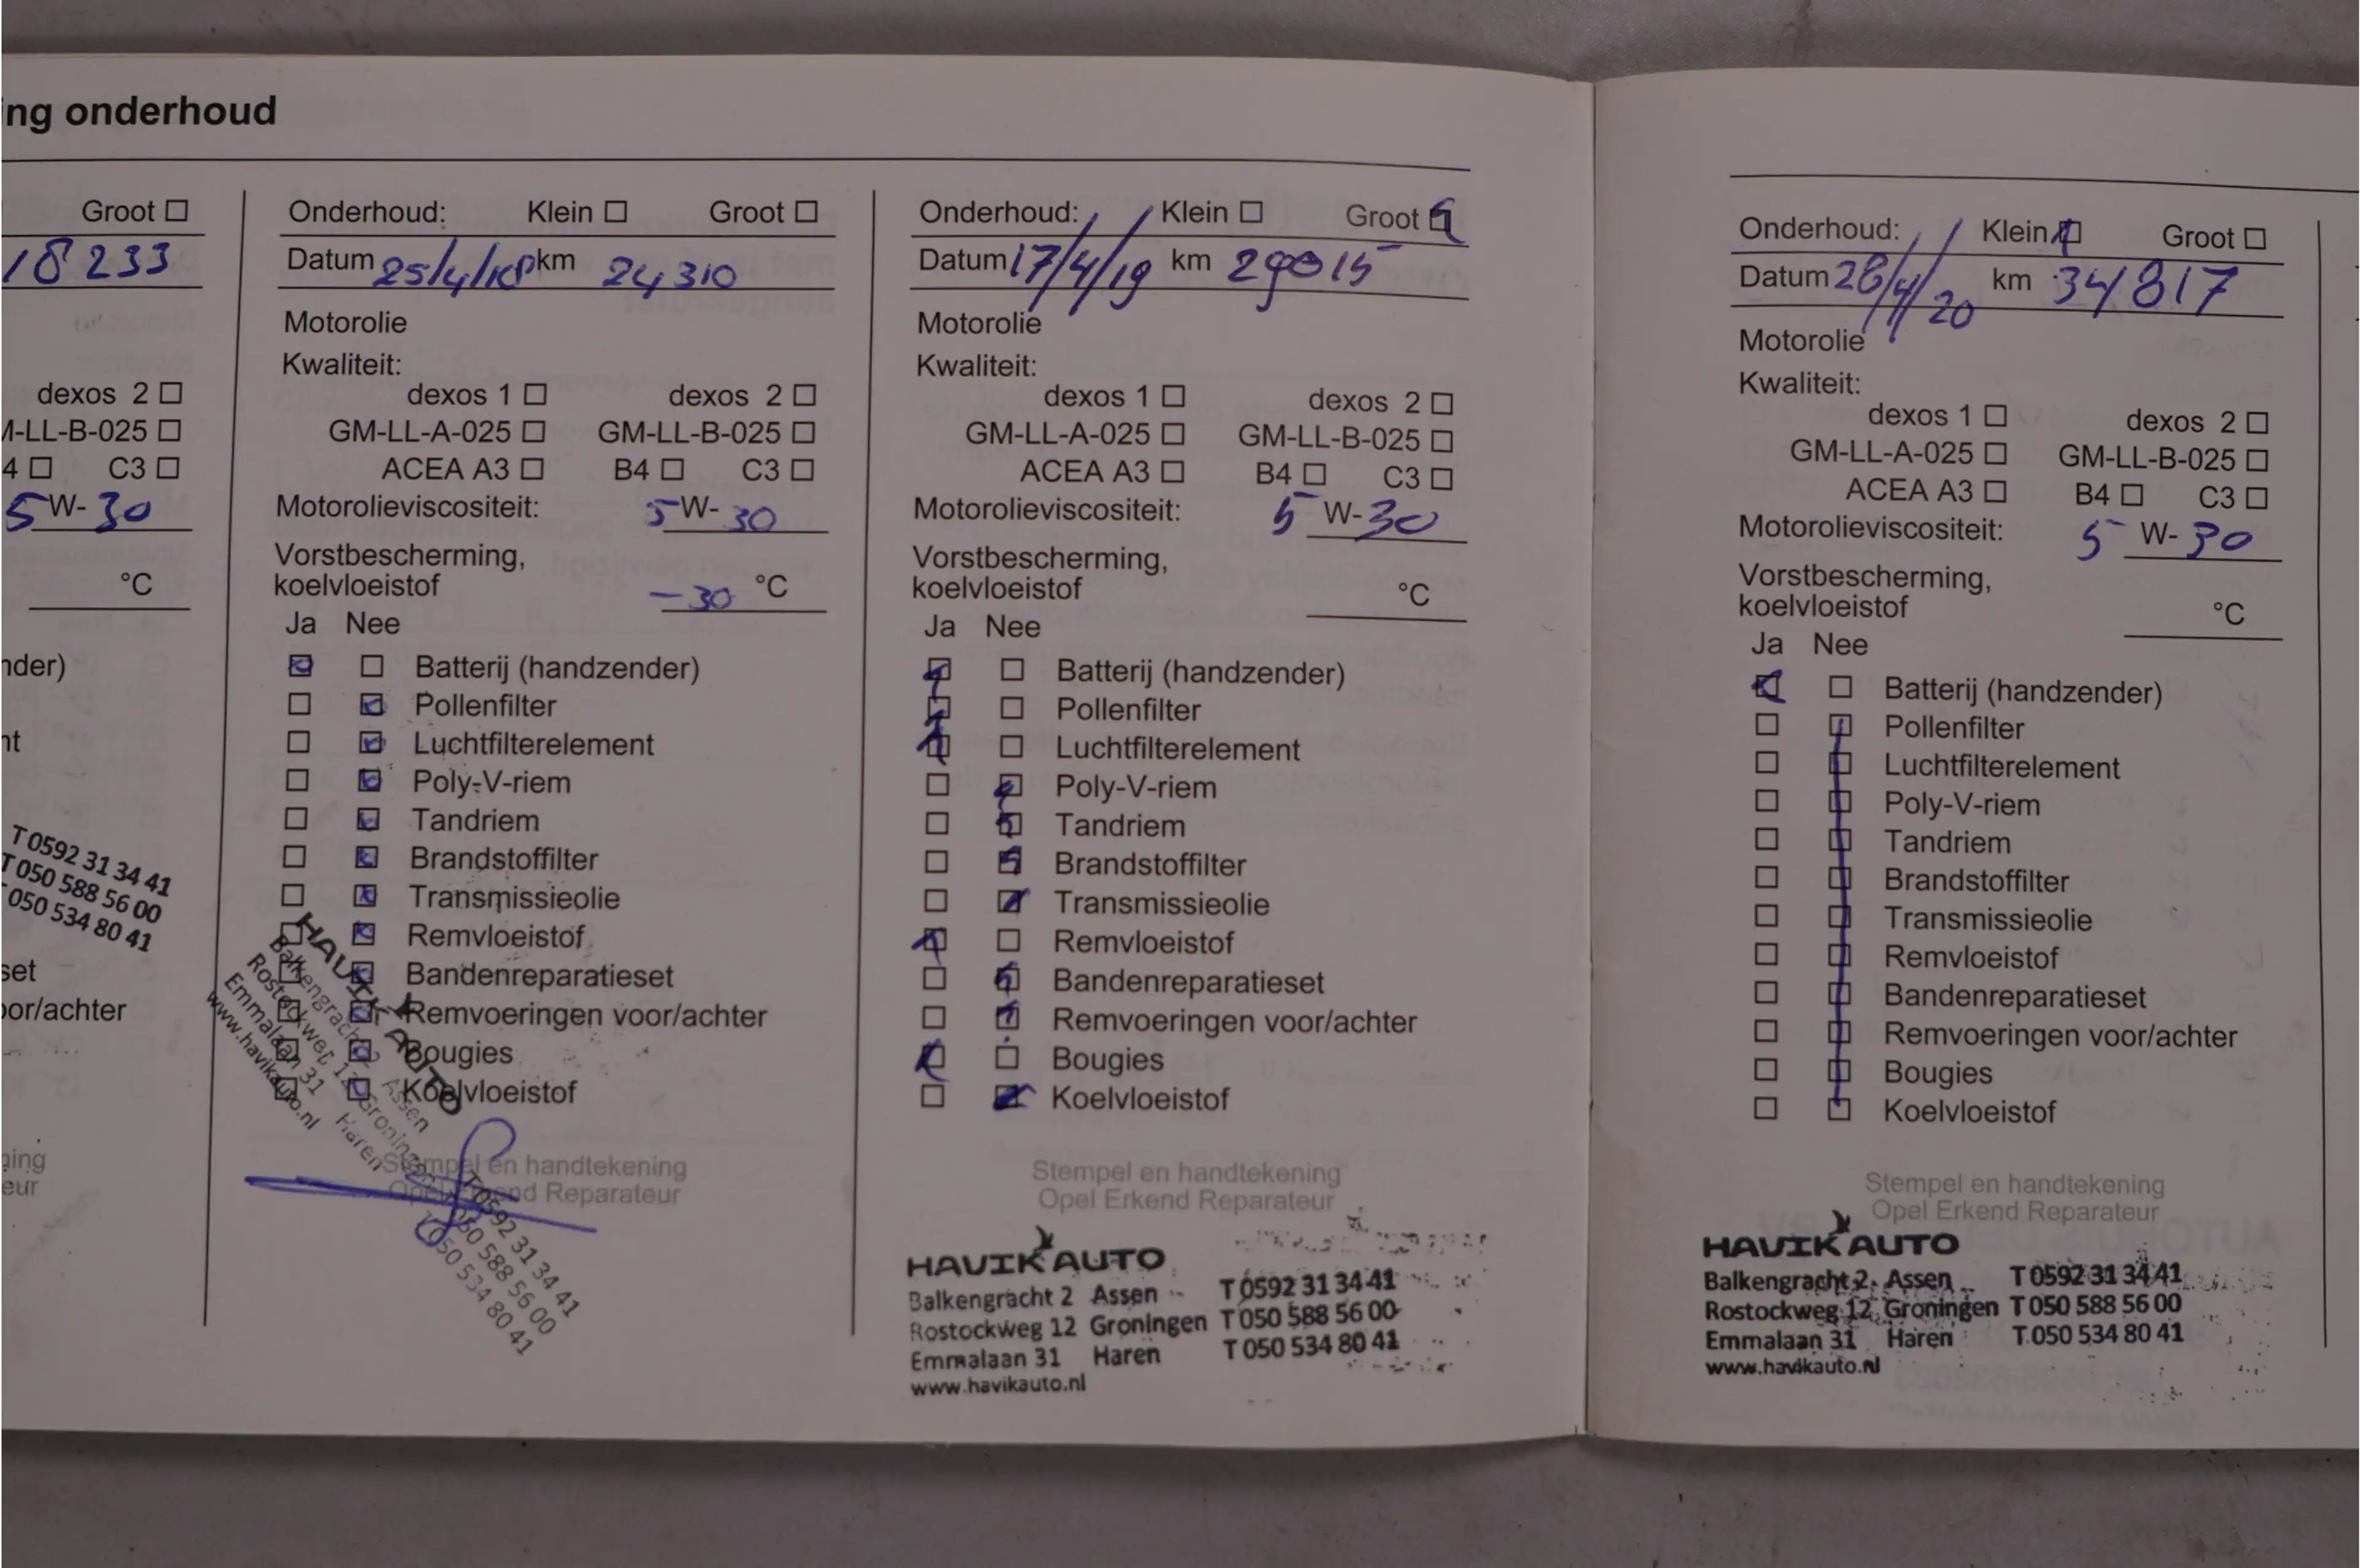 ng onderhoud
Groot
18233
dexos 2
-LL-B-025
4 C3
5 W- 30
°C
nder)
nt
T 0592 31 34 41
T 050 588 56 00
050 534 80 41
set
oor/achter
ning
eur
Onderhoud: Klein Groot
Datum 25/4/18 km 24310
Motorolie
Kwaliteit:
dexos 1 dexos 2
GM-LL-A-025 GM-LL-B-025
ACEA A3 B4 C3
Motorolieviscositeit: 5 W- 30
Vorstbescherming,
koelvloeistof -30 °C
Ja Nee
Batterij (handzender)
Pollenfilter
Luchtfilterelement
Poly-V-riem
Tandriem
Brandstoffilter
Transmissieolie
Remvloeistof
Bandenreparatieset
Remvoeringen voor/achter
Bougies
Koelvloeistof
Stempel en handtekening
Opel Erkend Reparateur
HAVIK AUTO
Balkengracht 2 Assen T 0592 31 34 41
Rostockweg 12 Groningen T 050 588 56 00
Emmalaan 31 Haren T 050 534 80 41
www.havikauto.nl
Onderhoud: Klein Groot
Datum 17/4/19 km 29015
Motorolie
Kwaliteit:
dexos 1 dexos 2
GM-LL-A-025 GM-LL-B-025
ACEA A3 B4 C3
Motorolieviscositeit: 5 W-30
Vorstbescherming,
koelvloeistof °C
Ja Nee
Batterij (handzender)
Pollenfilter
Luchtfilterelement
Poly-V-riem
Tandriem
Brandstoffilter
Transmissieolie
Remvloeistof
Bandenreparatieset
Remvoeringen voor/achter
Bougies
Koelvloeistof
Stempel en handtekening
Opel Erkend Reparateur
HAVIK AUTO
Balkengracht 2 Assen T 0592 31 34 41
Rostockweg 12 Groningen T 050 588 56 00
Emmalaan 31 Haren T 050 534 80 41
www.havikauto.nl
Onderhoud: Klein Groot
Datum 28/4/20 km 34817
Motorolie
Kwaliteit:
dexos 1 dexos 2
GM-LL-A-025 GM-LL-B-025
ACEA A3 B4 C3
Motorolieviscositeit: 5 W- 30
Vorstbescherming,
koelvloeistof °C
Ja Nee
Batterij (handzender)
Pollenfilter
Luchtfilterelement
Poly-V-riem
Tandriem
Brandstoffilter
Transmissieolie
Remvloeistof
Bandenreparatieset
Remvoeringen voor/achter
Bougies
Koelvloeistof
Stempel en handtekening
Opel Erkend Reparateur
HAVIK AUTO
Balkengracht 2 Assen T 0592 31 34 41
Rostockweg 12 Groningen T 050 588 56 00
Emmalaan 31 Haren T 050 534 80 41
www.havikauto.nl